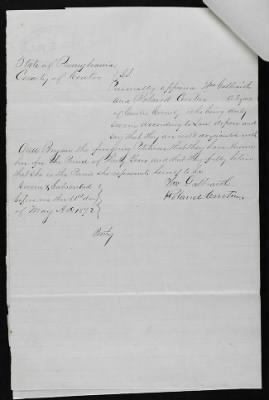 State of Pennsylvania
County of Center } SS
Personally appeared Wm Galbraith
and Roland Curtin citizens
of Center County who being duly
Sworn according to Law depose and
Say that they are well acquainted with
Bryan the that they have known
her for the Period of Years and that they fully believe
that she is the Person she represents herself to be
Sworn & Subscribed }
before me this 21st day }
of May A.D. 1892 }
Wm Galbraith
Roland Curtin